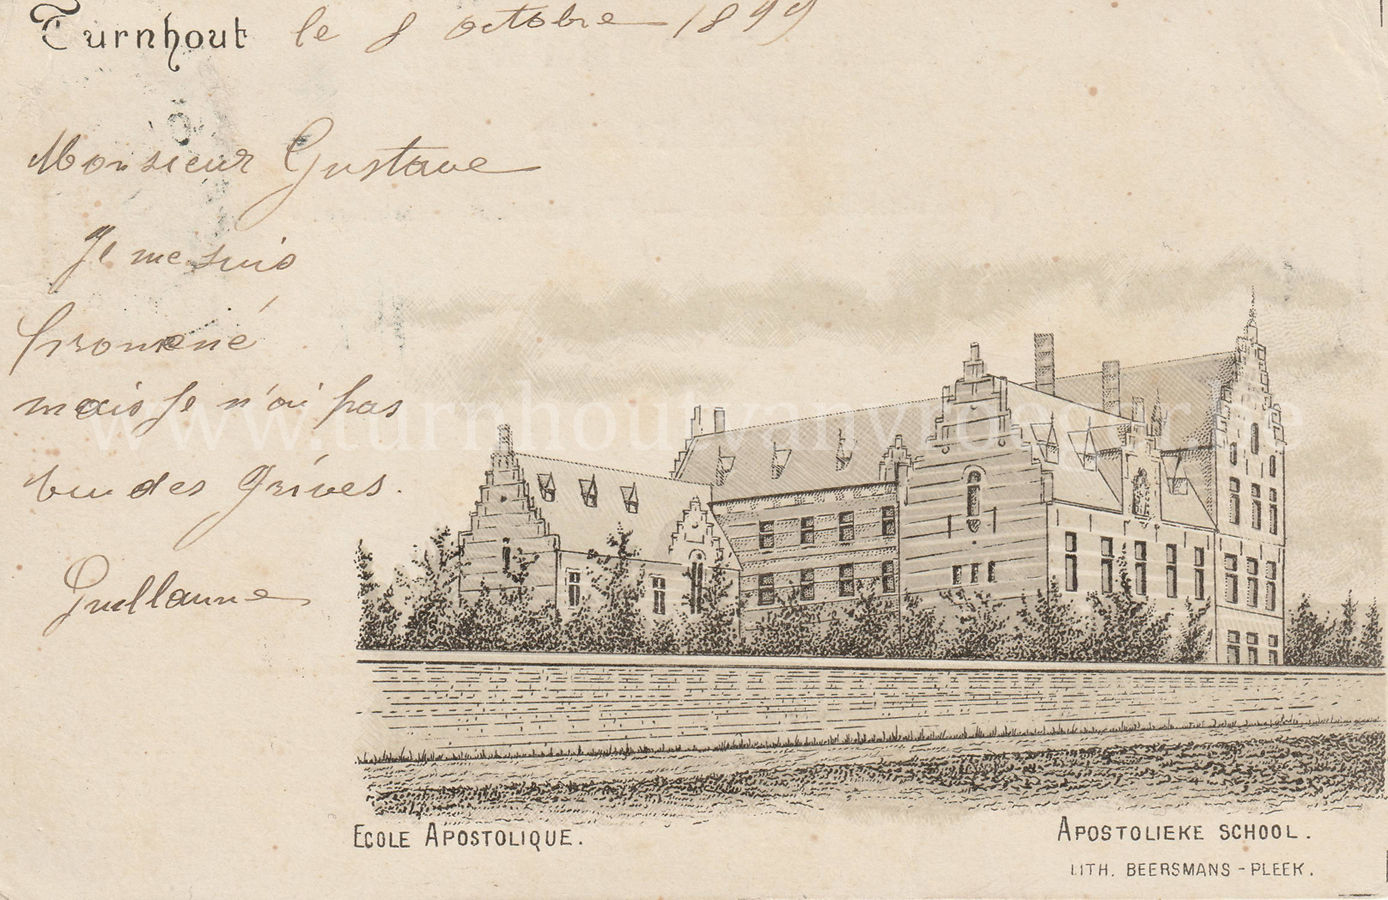 Turnhout le 8 octobre 1899
Monsieur Gustave
Je me suis
promené
mais je n'ai pas
vu des Grives.
Guillaume
www.turnhoutvanvroeger.be
ECOLE APOSTOLIQUE.
APOSTOLIEKE SCHOOL.
LITH. BEERSMANS-PLEEK.